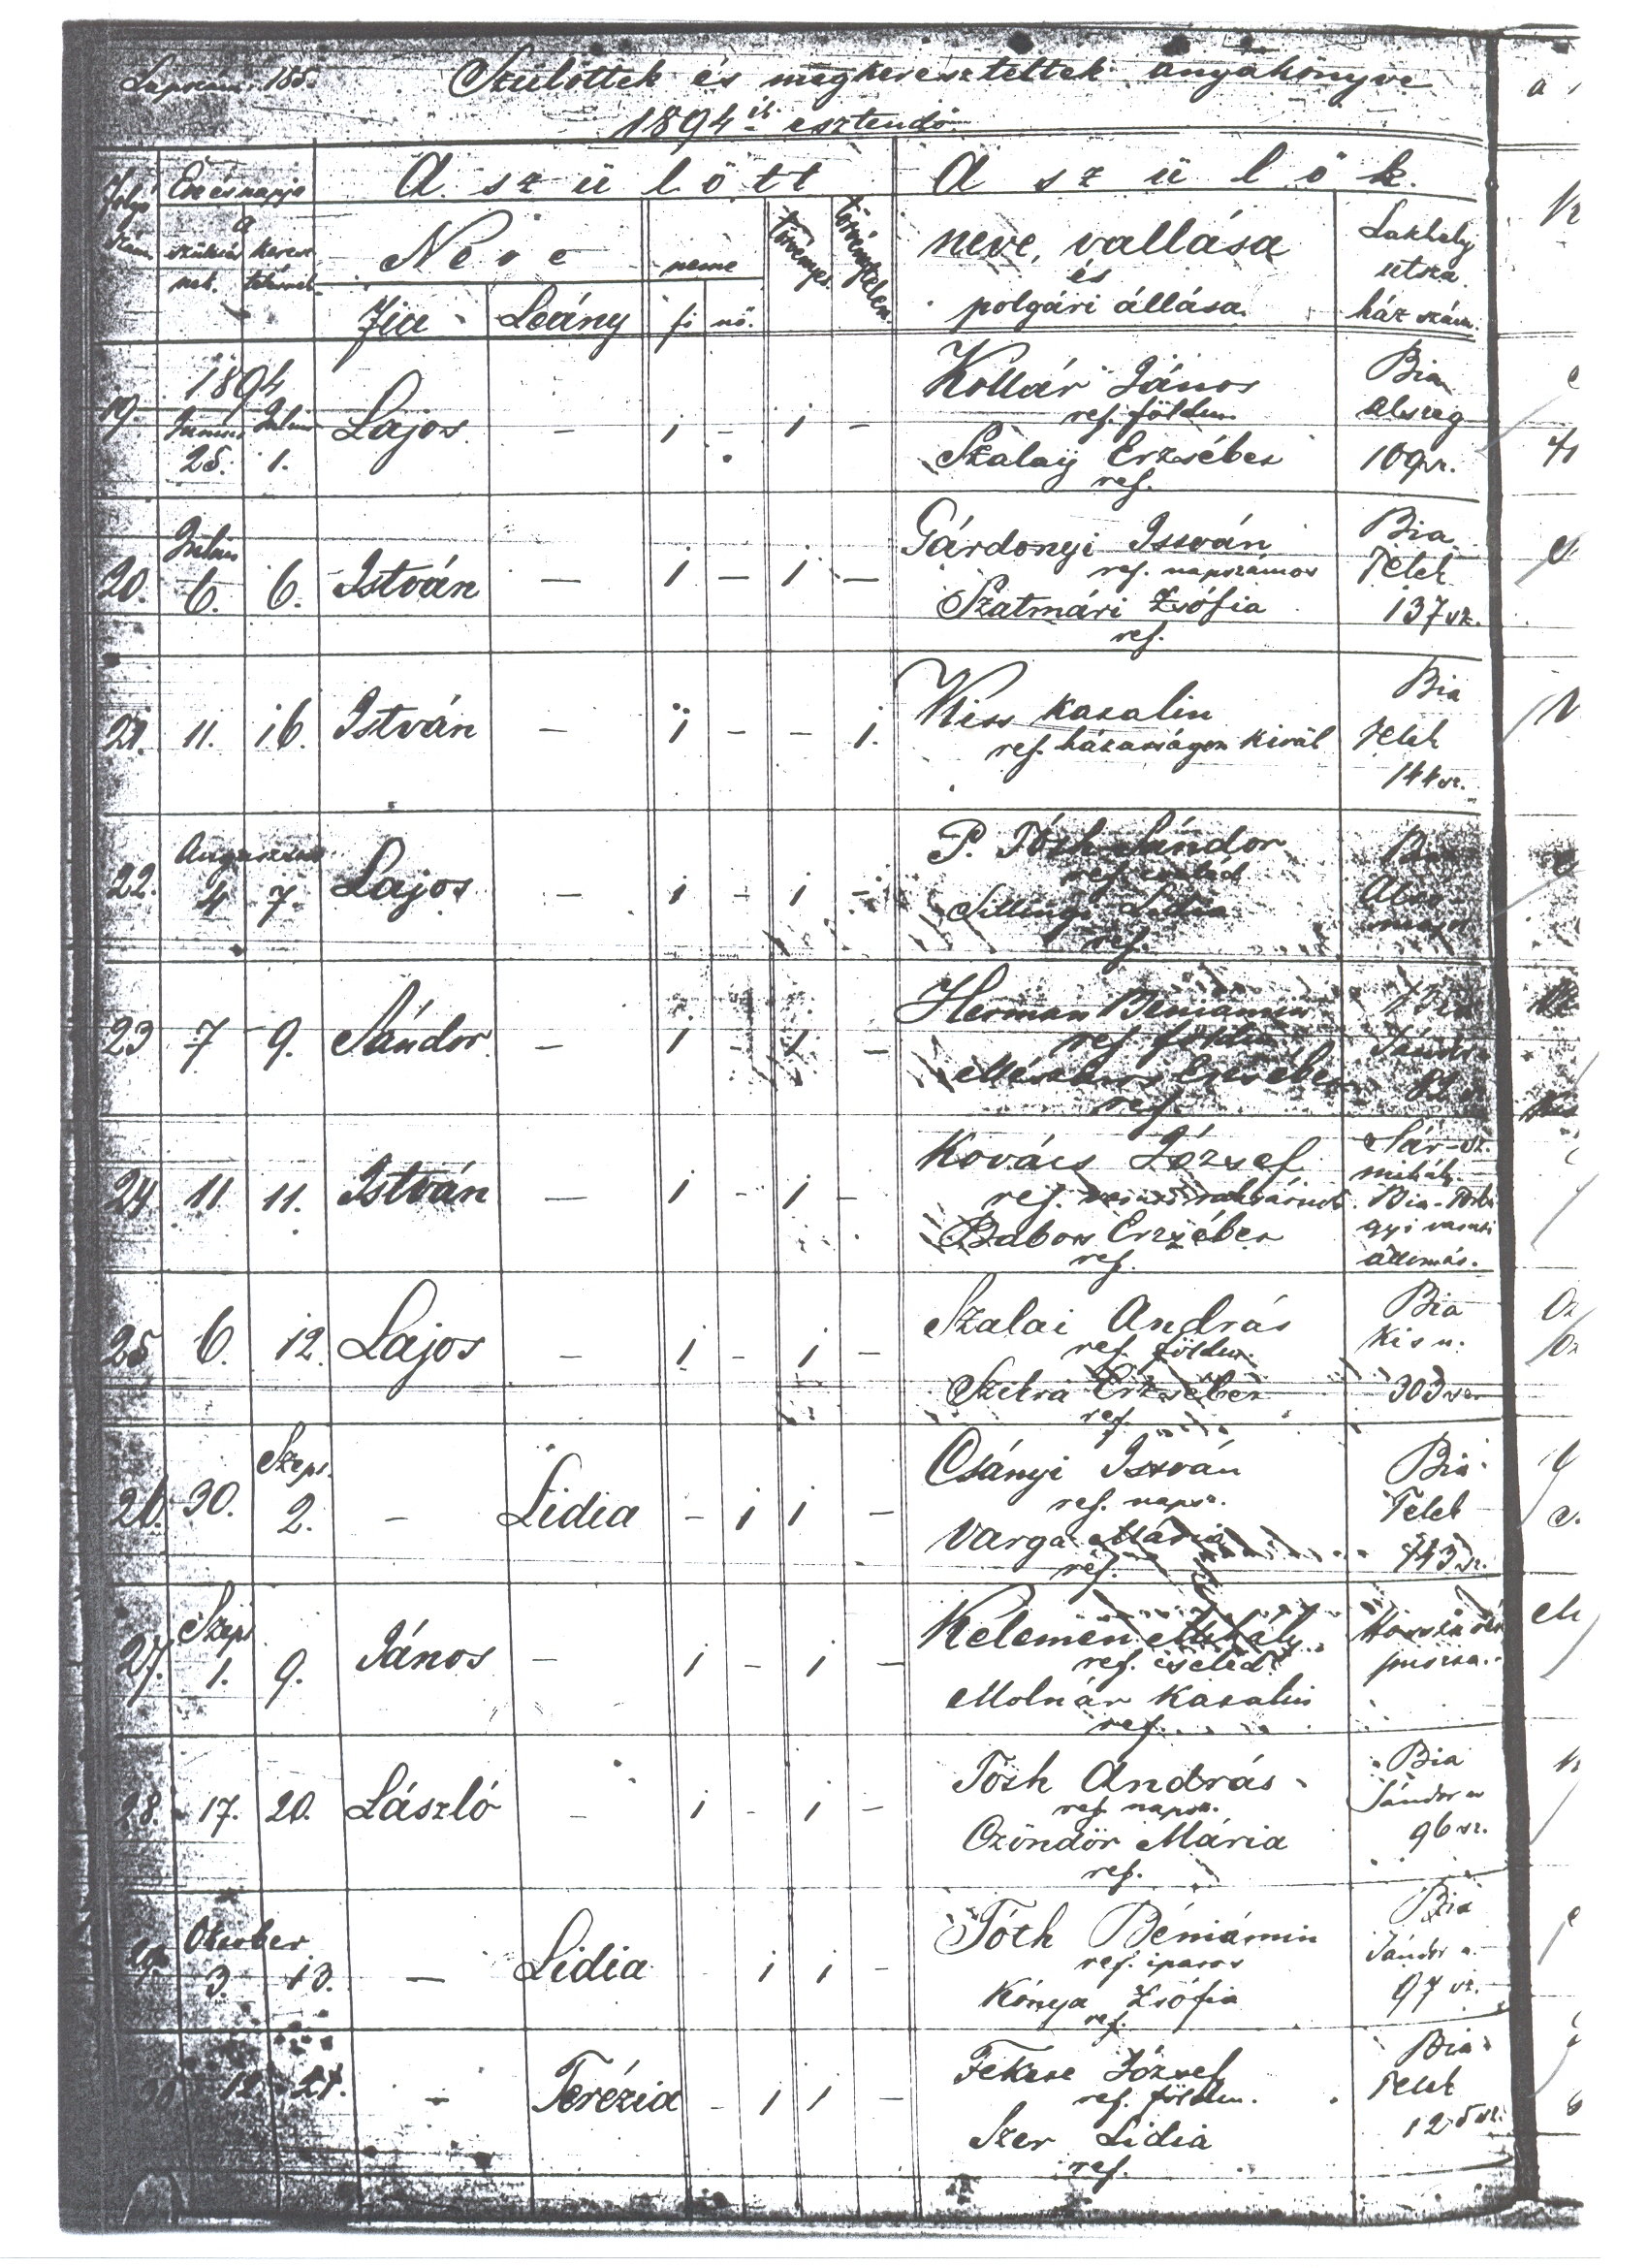 Lapszám 185. Szülöttek és megkereszteltek anyakönyve
1894ik esztendő
Folyó szám Éve és napja A szülött A szülők
a szüle­tésnek keresztelésnek Neve neme törvényes törvénytelen neve, vallása és polgári állása Lakhely utsza ház szám.
Fiu Leány fi nő.
1894 Kollár János Bia
19. Junius Julius Lajos – 1 – 1 – ref. földm. alszeg
25. 1. Szalay Erzsébet 109 sz.
ref.
Julius Gárdonyi István Bia
20. 6. 6. István – 1 – 1 – ref. napszámos Telek
Szatmári Zsófia 137 sz.
ref.
Bia
21. 11. 16. István – 1 – – 1. Kiss Katalin
ref. házasságon kivül Telek
144 sz.
Augusztus P. Tóth Sándor
22. 4 7. Lajos – 1 – 1 – ref. cseléd
Lidia
ref.
Herman Beniámin Bia
23 7 9. Sándor – 1 – 1 – ref. földm. Sándor u
Mészáros Erzsébet
ref.
Kovács József Sár-sz.
mihály.
24. 11 11. István – 1 – 1 – ref. Bia-Torbá
Babos Erzsébet gyi vasuti
ref. állomás.
Szalai András Bia
25 6. 12. Lajos – 1 – 1 – ref. földm. Kis u.
Erzsébet 303 sz.
ref.
Szept. Csányi István Bia
26. 30. 2. – Lidia – 1 1 – ref. napsz. Telek
Varga Mária 143 sz.
ref.
Szept Kelemen Mihály
27. 1. 9. János – 1 – 1 – ref. cseléd puszta.
Molnár Katalin
ref.
Tóth András Bia
28. 17. 20. László – 1 – 1 – ref. napsz. Sándor u
Czöndör Mária 96 sz.
ref.
Oktober Tóth Béniámin Bia
29. 3. 13. – Lidia – 1 1 – ref. iparos Sándor u.
Kónya Zsófia 97 sz.
ref.
Fekete József Bia
30 12 21. – Terézia – 1 1 – ref. földm. Telek
Szer Lidia 125 sz.
ref.